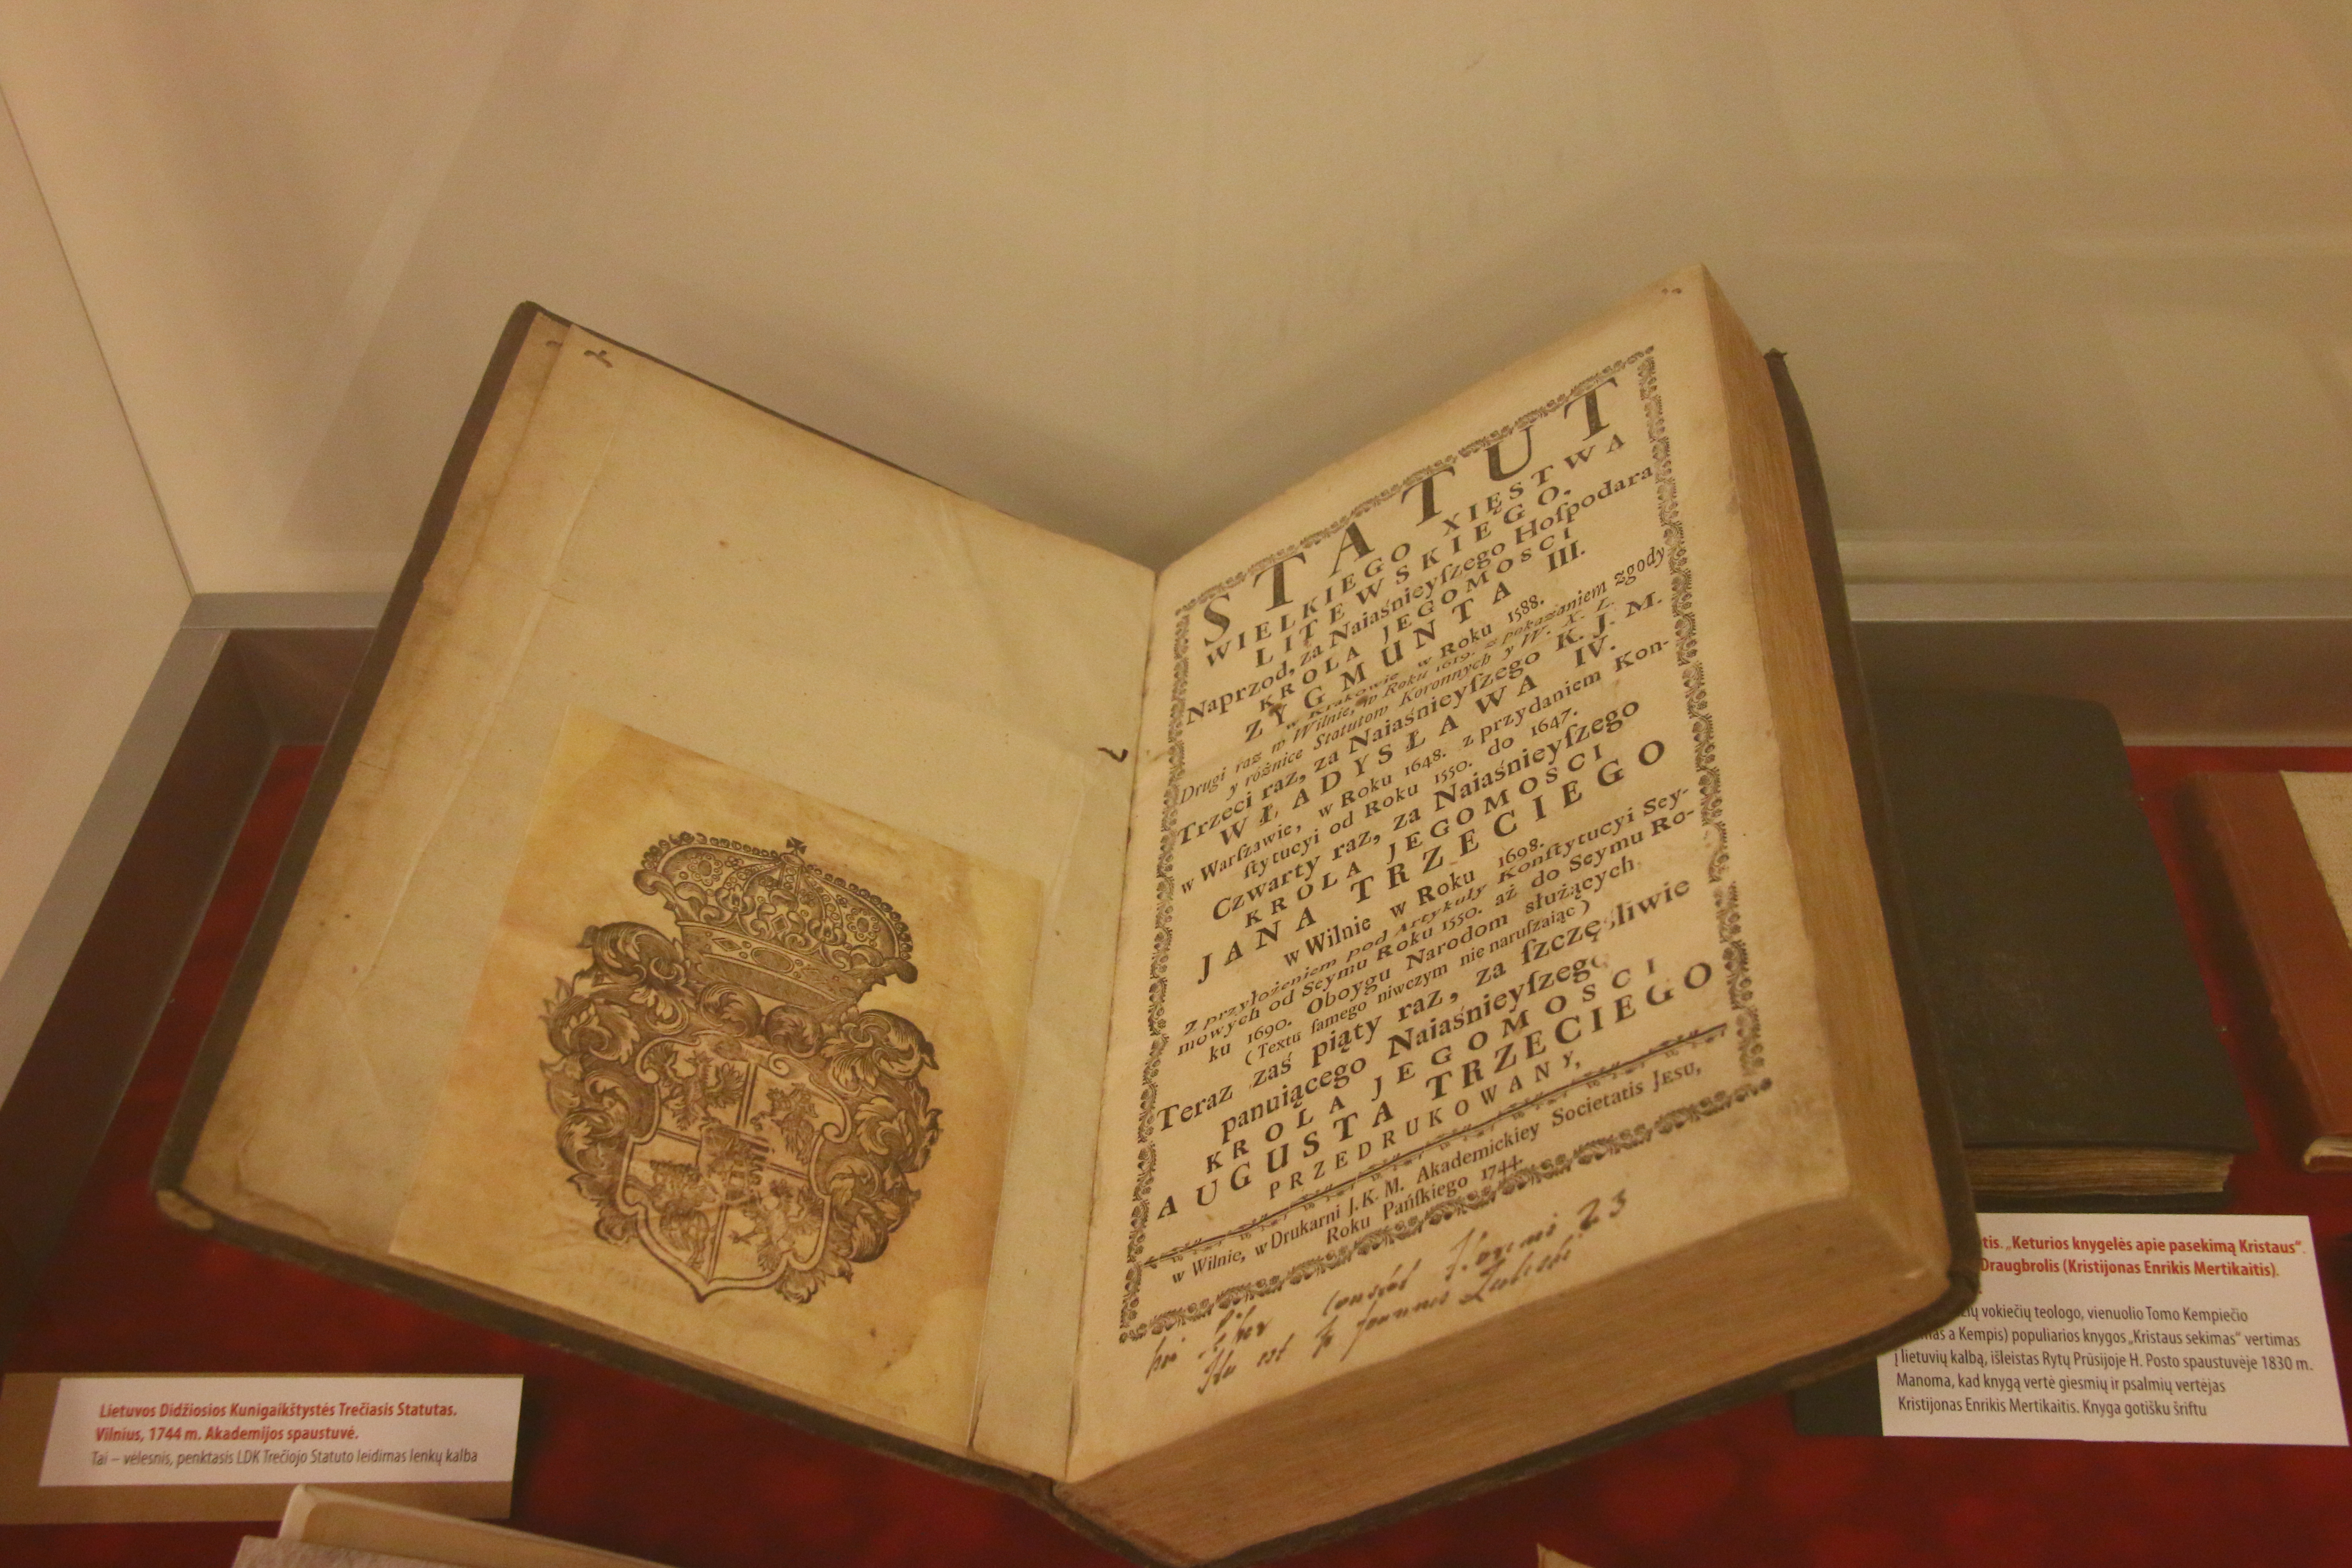 STATUT
WIELKIEGO XIĘSTWA
LITEWSKIEGO.
Naprzod, za Naiaśnieyſzego Hoſpodara
KROLA JEGOMOSCI
ZYGMUNTA III.
w Krakowie w Roku 1588.
Drugi raz w Wilnie, w Roku 1619. z pokazaniem zgody
y rożnice Statutow Koronnych y W. X. L.
Trzeci raz, za Naiaśnieyſzego K. J. M.
WŁADYSŁAWA IV.
w Warſzawie, w Roku 1648. z przydaniem Kon-
ſtytucyi od Roku 1550. do 1647.
Czwarty raz, za Naiaśnieyſzego
KROLA JEGOMOSCI
JANA TRZECIEGO
w Wilnie w Roku 1698.
Z przyłożeniem pod Artykuły Konſtytucyi Sey-
mowych od Seymu Roku 1550. aż do Seymu Ro-
ku 1690. Oboygu Narodom służących
(Textu ſamego niwczym nie naruſzaiąc)
Teraz zaś piąty raz, za ſzczęśliwie
panuiącego Naiaśnieyſzego
KROLA JEGOMOSCI
AUGUSTA TRZECIEGO
PRZEDRUKOWANY,
w Wilnie, w Drukarni J. K. M. Akademickiey Societatis JESU,
Roku Pańſkiego 1744.
23
est
Lietuvos Didžiosios Kunigaikštystės Trečiasis Statutas.
Vilnius, 1744 m. Akademijos spaustuvė.
Tai – vėlesnis, penktasis LDK Trečiojo Statuto leidimas lenkų kalba
tis. „Keturios knygelės apie pasekimą Kristaus“.
Draugbrolis (Kristijonas Enrikis Mertikaitis).
vokiečių teologo, vienuolio Tomo Kempiečio
a Kempis) populiarios knygos „Kristaus sekimas“ vertimas
į lietuvių kalbą, išleistas Rytų Prūsijoje H. Posto spaustuvėje 1830 m.
Manoma, kad knygą vertė giesmių ir psalmių vertėjas
Kristijonas Enrikis Mertikaitis. Knyga gotišku šriftu